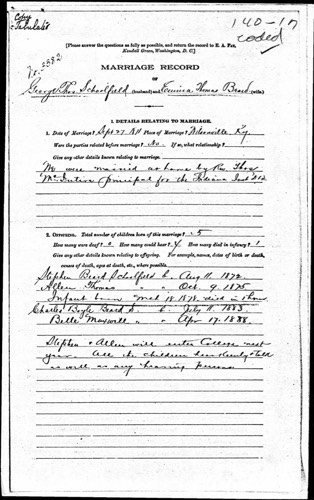 Copy
Tabulated
140-17
coded
[Please answer the questions as fully as possible, and return the record to E. A. Fay,
Kendall Green, Washington, D. C.]
No. 3382
MARRIAGE RECORD
OF
George Thos Schoolfield (husband) and Louisa Thomas Beard (wife)
I. DETAILS RELATING TO MARRIAGE.
1. Date of Marriage? Sept 27 1871 Place of Marriage? Kentucky
Were the parties related before marriage? No. If so, what relationship?
Give any other details known relating to marriage.
We were married at home by Rev. Thos.
McIntire principal for the Indiana Inst D & D
2. OFFSPRING. Total number of children born of this marriage? 5
How many were deaf? 0 How many could hear? 4 How many died in infancy? 1
Give any other details known relating to offspring. For example, names, dates of birth or death,
causes of death, ages at death, etc., where possible.
Stephen Beard Schoolfield b. Aug 11. 1872
Allen Thomas " " Oct. 9. 1875
Infant born Mch 18 1878 died in
Charles Boyle Beard S. b. July 11. 1883.
Belle Maxwell " " Apr 17. 1888.
Stephen & Allen will enter College next
year. All the children hear & talk
as well as any hearing persons.